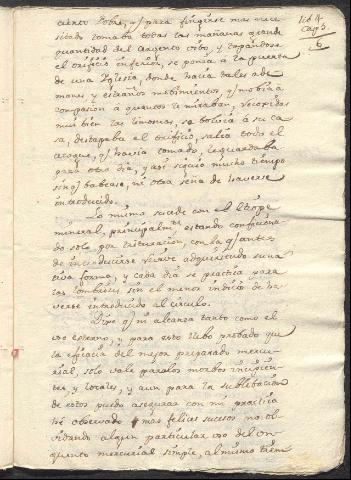 lib 4.
Cap 3.
6
ciento Pobre, y para fingirse mas nece
sitado tomaba todas las mañanas grande
quantidad del Argento vibo, y tapandose
el orificio inferior, se ponia a la puerta
de una Yglesia, donde hacia tales ade
manes y estraños mobimientos, q mobia a
compasion a quantos le miraban, recogidas
mui bien las limosnas, se bolvia â su ca
sa, destapaba el orificio, salia todo el
azogue, q havia tomado, le guardaba
para otro dia, y asi siguio mucho tiempo
sin q babease, ni otra seña de haverse
introducido.
Lo mismo sucede con el Etiope
mineral, principalm.te estando confeciona
do solo por trituracion, con la q antes
de introducirse buelve adquiriendo su na
tiva forma, y cada dia se practica para
las lombrices, sin el menor indicio de ha
verse introducido al circulo.
Dije q ni alcanza tanto como el
uso externo, y para esto llebo probado que
la eficacia del mejor preparado mercu
rial, solo vale para los morbos incipien
tes y locales, y aun para la sublebacion
de estos puedo asegurar con mi practica
hè observado mas felices sucesos no ol
vidando algun particular uso del on
guento mercurial simple, al mismo tiem